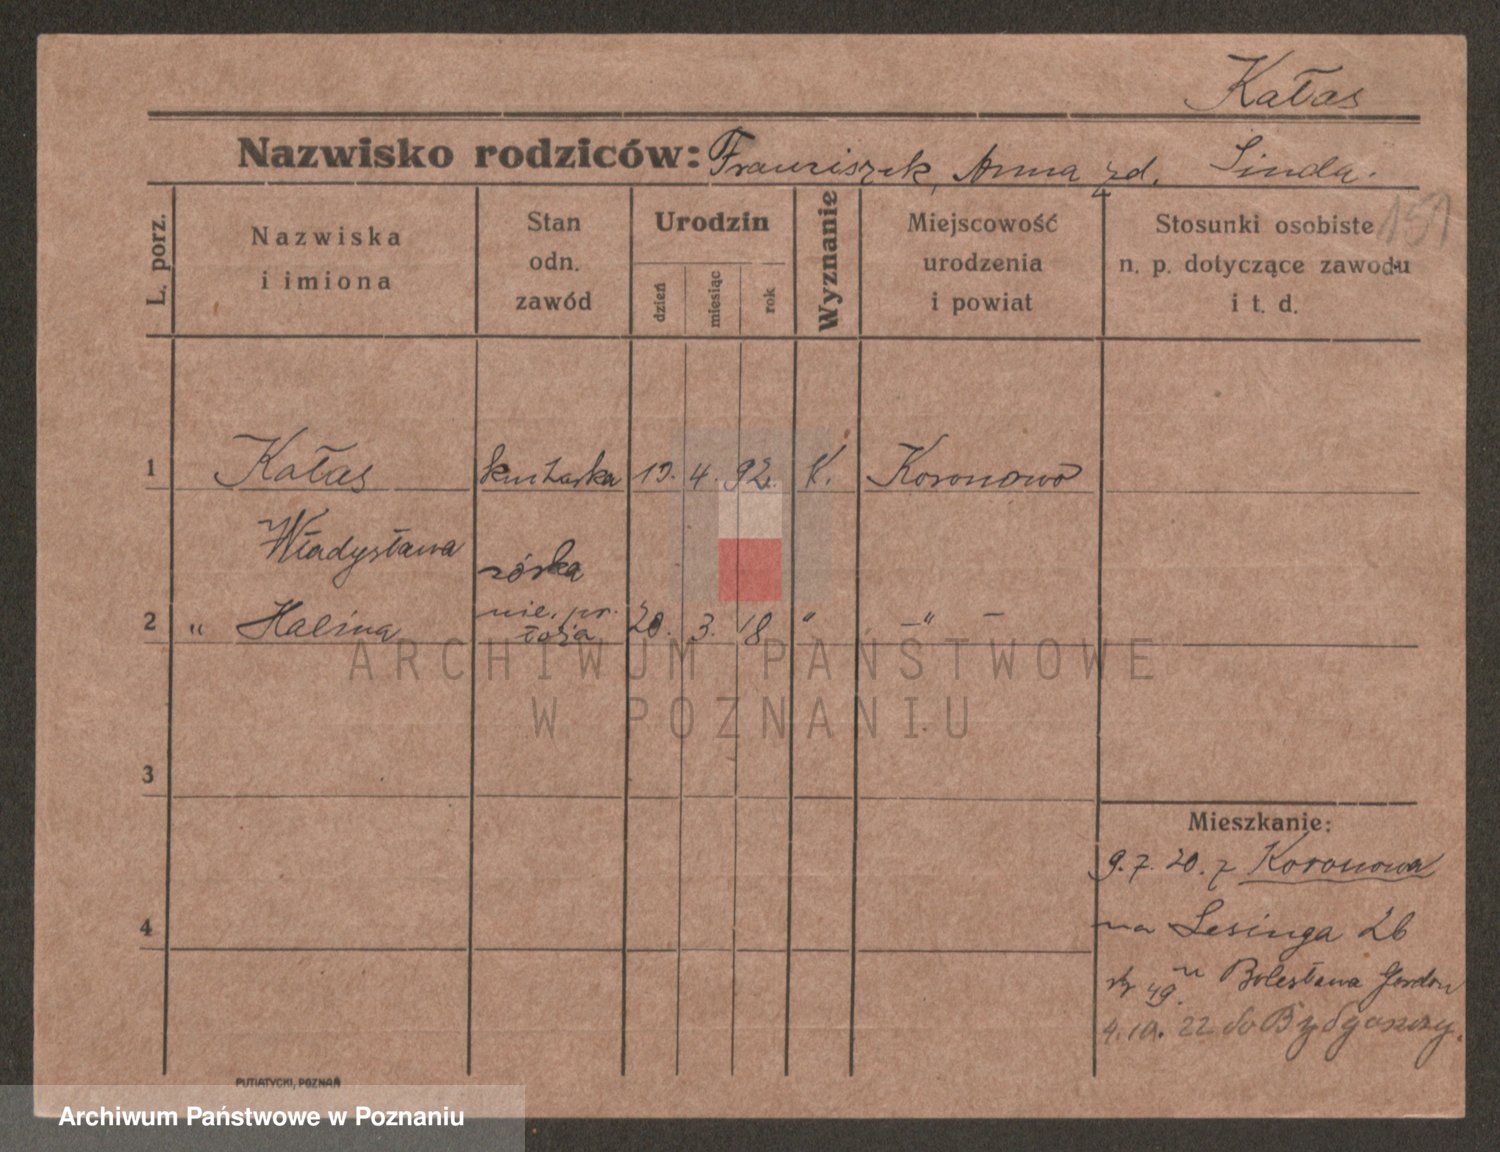 Kałas
Nazwisko rodziców: Franciszek, Anna zd. Sinda.
151
L. porz.
Nazwiska
i imiona
Stan
odn.
zawód
Urodzin
dzień
miesiąc
rok
Wyznanie
Miejscowość
urodzenia
i powiat
Stosunki osobiste
n. p. dotyczące zawodu
i t. d.
1 Kałas kucharka 19. 4. 92. K. Koronowo
Władysława
córka
2 " Halina nie. 20. 3. 18 " — " —
3
4
Mieszkanie:
9.7.20. z Koronowa
na Lesinga 26
49. u Bolesława Gordon
4.10.22 do Bydgoszczy.
PUTIATYCKI, POZNAŃ
ARCHIWUM PAŃSTWOWE
W POZNANIU
Archiwum Państwowe w Poznaniu